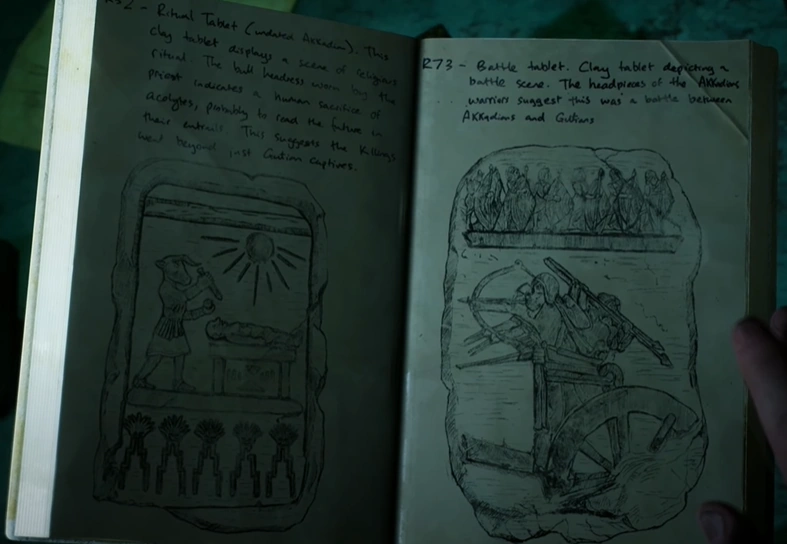 R52 - Ritual Tablet (undated Akkadian). This
clay tablet displays a scene of religious
ritual. The bull headress worn by the
priest indicates a human sacrifice of
acolytes, probably to read the future in
their entrails. This suggests the killings
went beyond just Gutian captives.
R73 - Battle tablet. Clay tablet depicting a
battle scene. The headpieces of the Akkadian
warriors suggest this was a battle between
Akkadians and Gutians